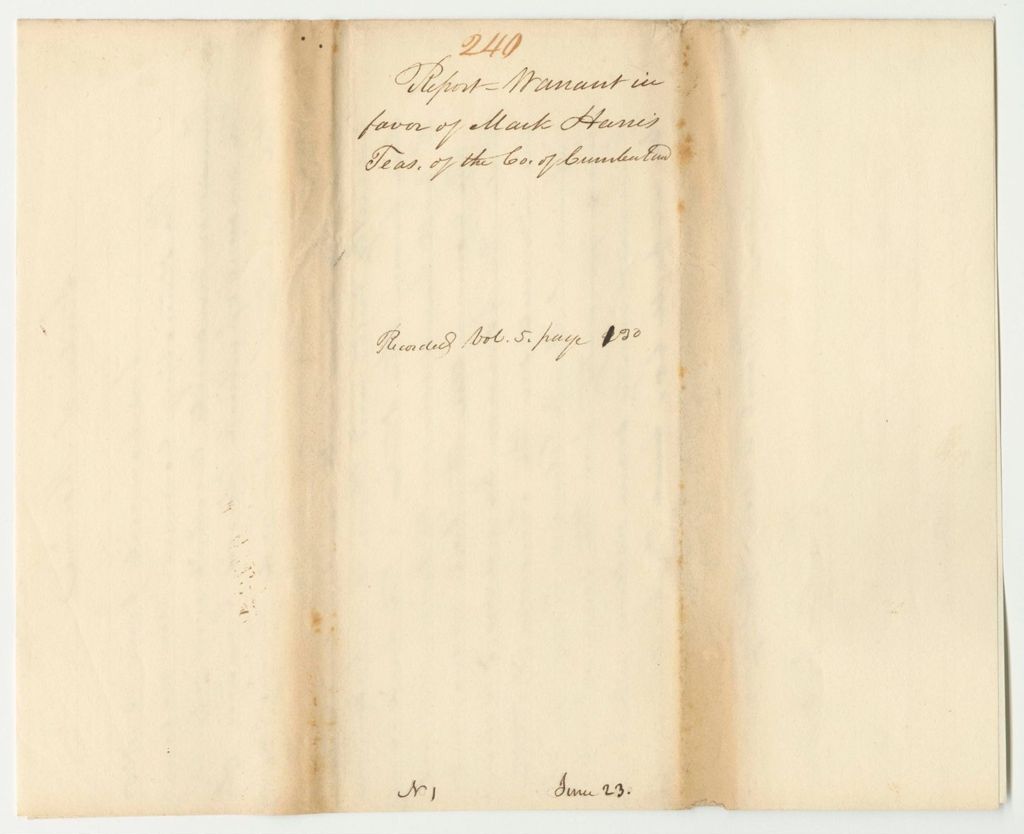 240
Report = Warrant in
favor of Mark Harris
Teas. of the Co. of Cumberland
Recorded Vol. 5. page 130
N 1 June 23.